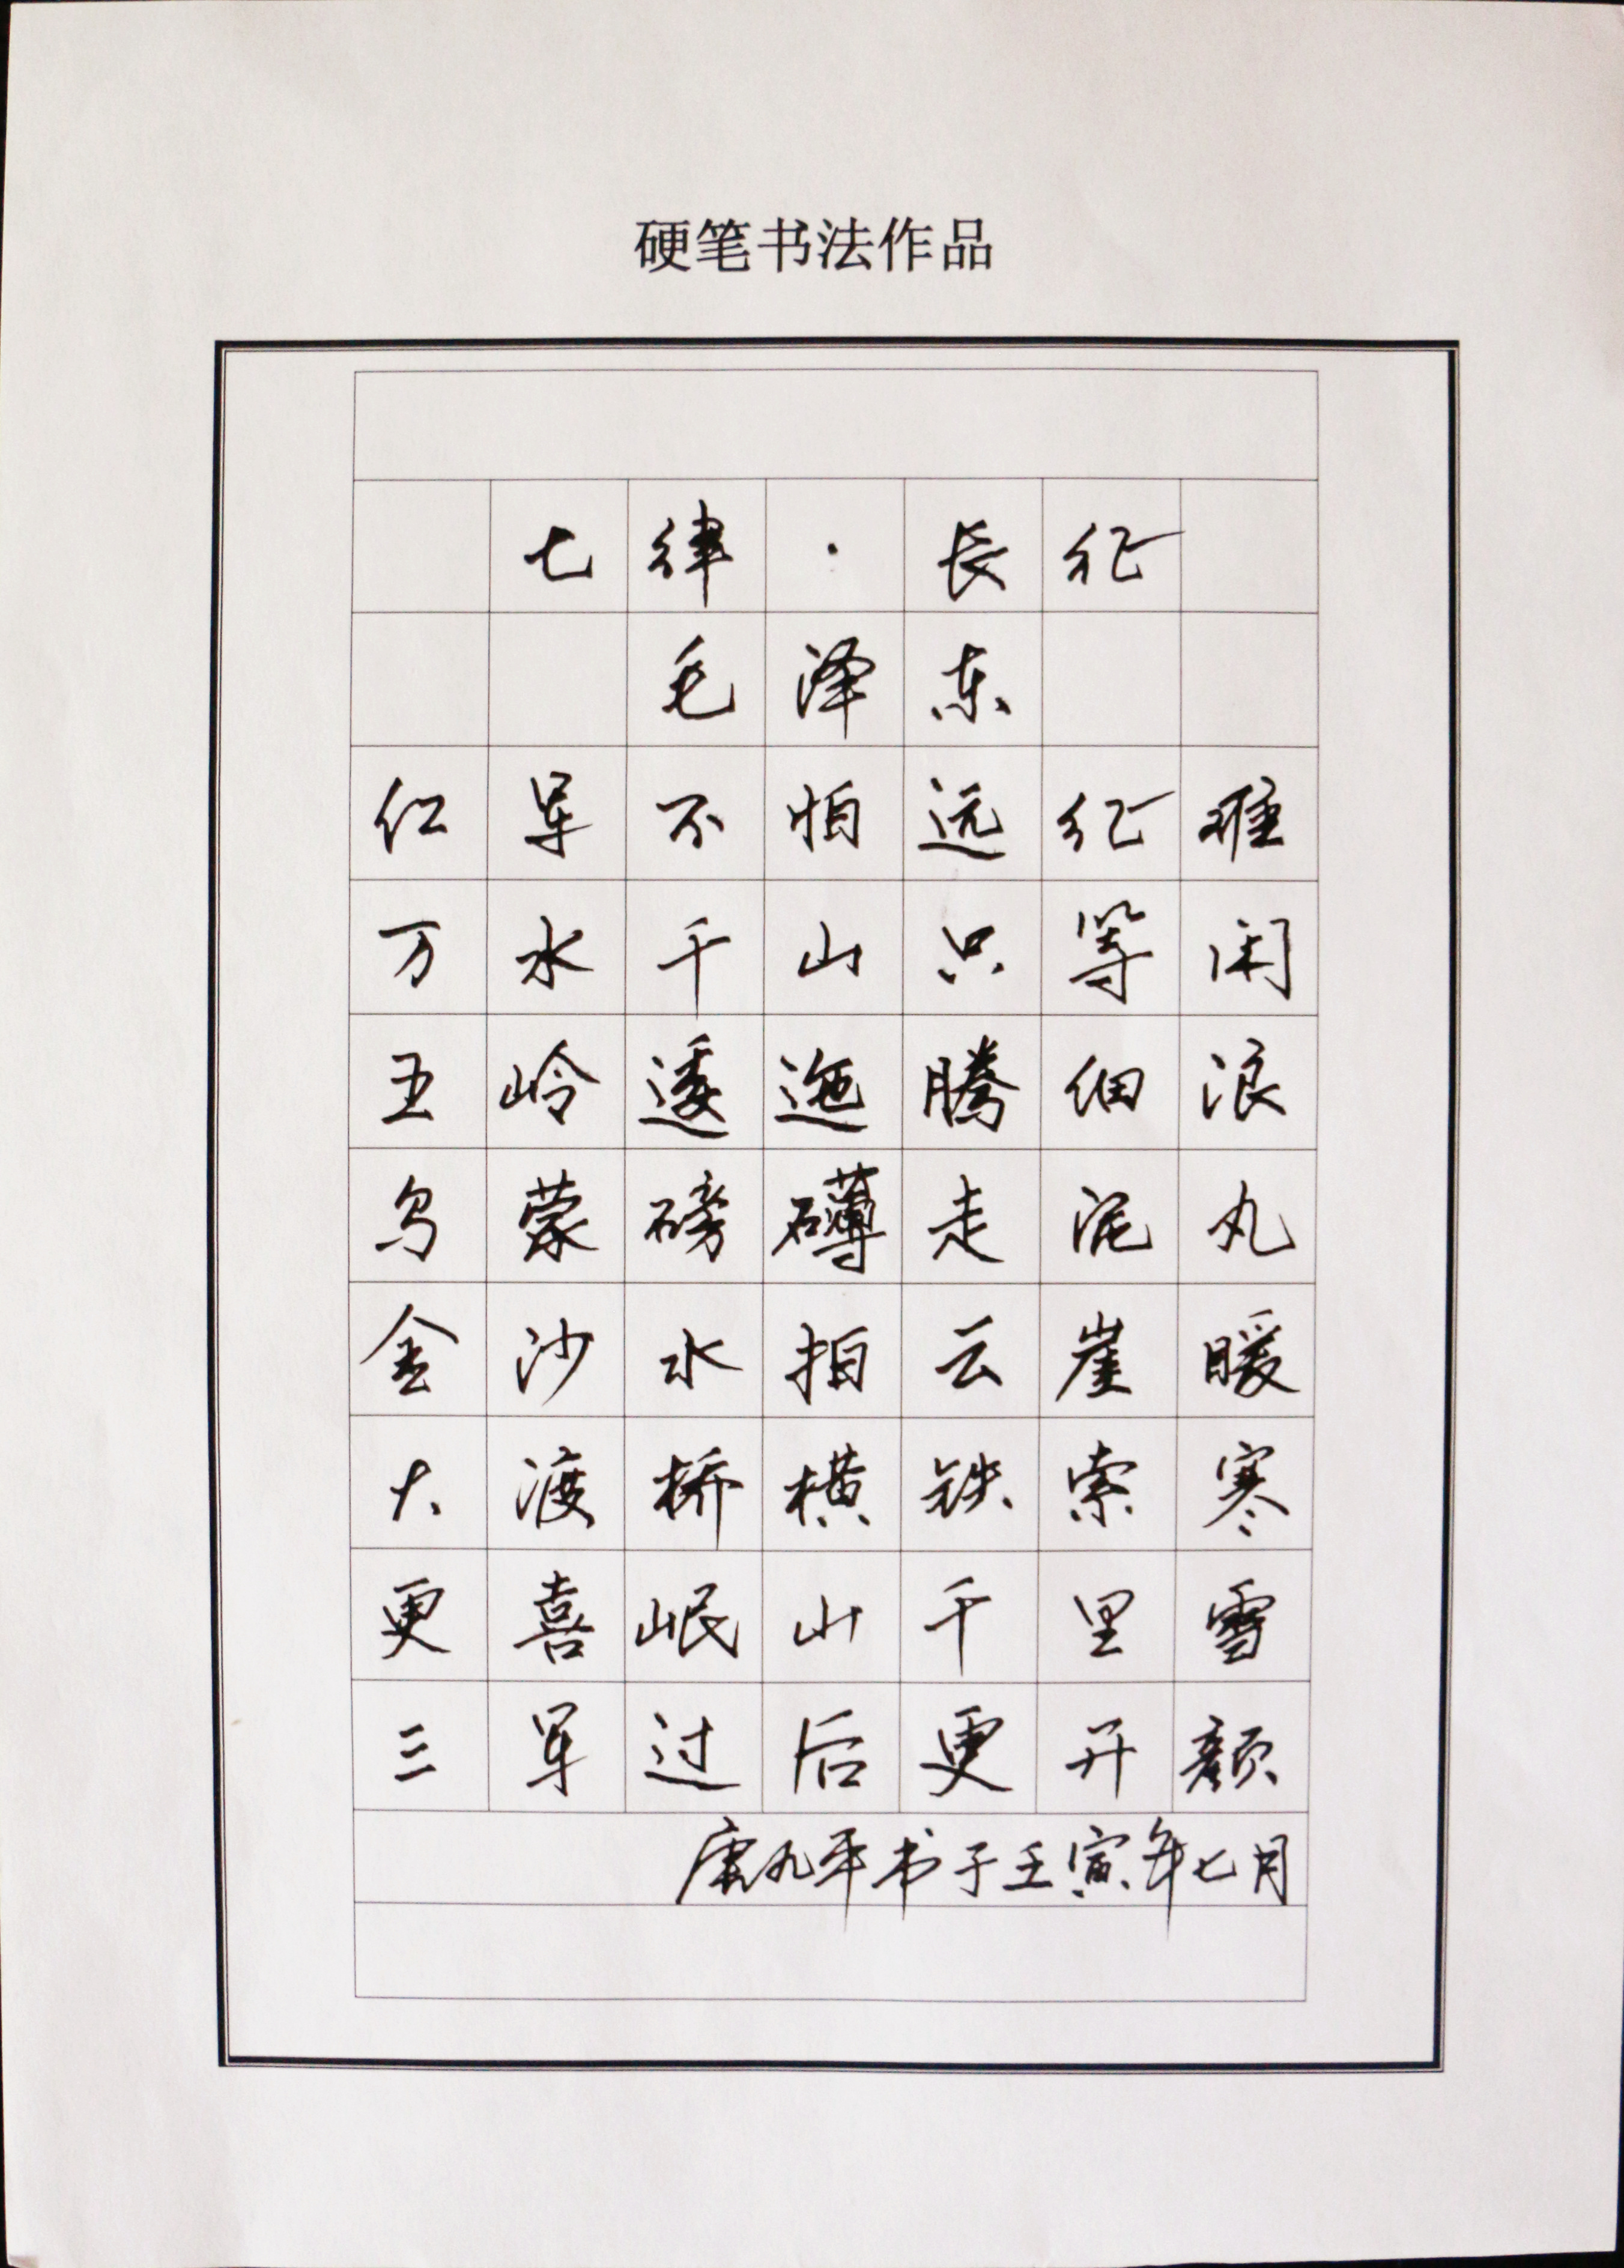 硬笔书法作品
七律·长征
毛泽东
红军不怕远征难
万水千山只等闲
五岭逶迤腾细浪
乌蒙磅礴走泥丸
金沙水拍云崖暖
大渡桥横铁索寒
更喜岷山千里雪
三军过后更开颜
九平书于壬寅年七月